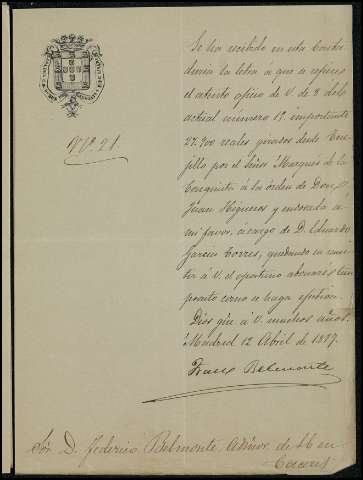 Nº 21.
Se ha recibido en esta Conta
duria la letra á que se refiere
el atento oficio de V. de 8 del
actual número 19 importante
27.900 reales girados desde Tru
jillo por el Señor Marques de la
Conquista á la órden de Don
Juan Higueros y endosada á
mi favor, á cargo de D. Eduardo
Garcia Torres, quedando en remi
tir á V. el oportuno abonarés tan
pronto como se haga efectiva.
Dios gue. á V. muchos años.
Madrid 12 Abril de 1877.
Belmonte
Sor. D. Federico Belmonte, Admor. de en
Cáceres